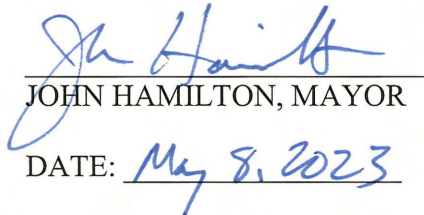 John Hamilton
JOHN HAMILTON, MAYOR
DATE: May 8, 2023